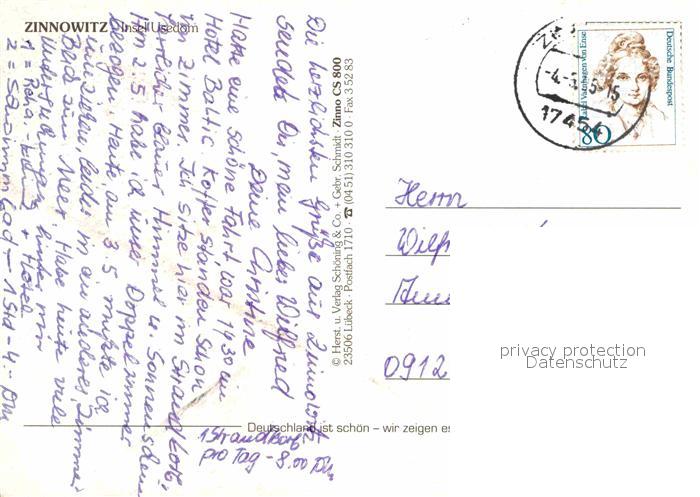 ZINNOWITZ Insel Usedom
Die herzlichsten Grüße aus Zinnowitz
sendet Dir, mein lieber Wilfried
Deine Christine
Hatte eine schöne Fahrt, war 14.30 im
Hotel Baltic. Koffer standen schon
im Zimmer. Ich sitze hier im Strandkorb,
herrlicher blauer Himmel u. Sonnenschein
Am 2.5. habe ich unser Doppelzimmer
bezogen. Heute am 3.5. mußte ich
umziehen, leider in ein anderes Zimmer
Bad zum Meer. Habe heute viele
hinter mir
1 = Reha + Hotel
2 = Schwimmbad – 1 Std – 4.– DM
1 Strandkorb
pro Tag – 8.00 DM
© Herst. u. Verlag Schöning & Co. + Gebr. Schmidt · Zinno CS 800
23506 Lübeck · Postfach 1710 · ☎ (04 51) 310 310 0 · Fax 3 52 83
Deutschland ist schön – wir zeigen es
Deutsche Bundespost
Rahel Varnhagen von Ense
80
17454
Herrn
Wilf
0912
privacy protection
Datenschutz